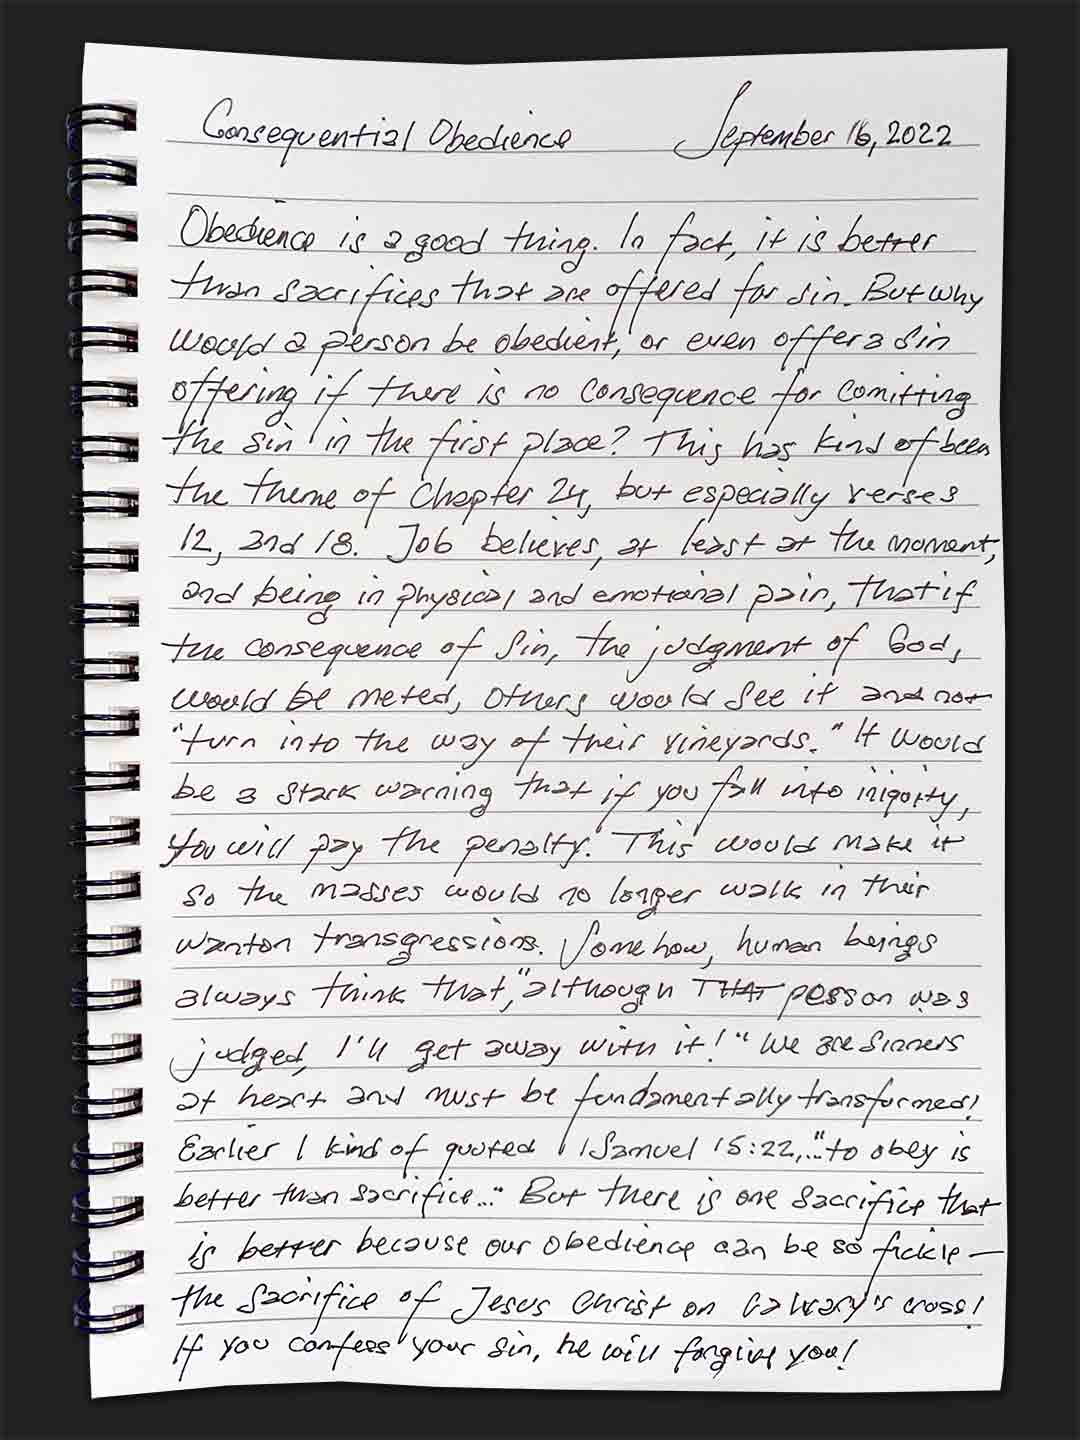 Consequential Obedience September 16, 2022
Obedience is a good thing. In fact, it is better
than sacrifices that are offered for sin. But why
would a person be obedient, or even offer a sin
offering if there is no consequence for comitting
the sin in the first place? This has kind of been
the theme of Chapter 24, but especially verses
12, and 18. Job believes, at least at the moment,
and being in physical and emotional pain, that if
the consequence of sin, the judgment of God,
would be meted, others would see it and not
"turn into the way of their vineyards." It would
be a stark warning that if you fall into iniquity,
you will pay the penalty. This would make it
so the masses would no longer walk in their
wanton transgressions. Somehow, human beings
always think that, "although THAT person was
judged, I'll get away with it!" We are sinners
at heart and must be fundamentally transformed!
Earlier I kind of quoted 1 Samuel 15:22, "...to obey is
better than sacrifice..." But there is one sacrifice that
is better because our obedience can be so fickle—
the sacrifice of Jesus Christ on Calvary's cross!
If you confess your sin, he will forgive you!